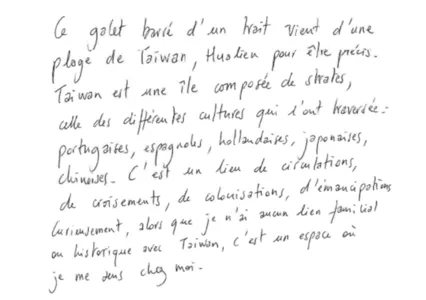 Ce galet barré d'un trait vient d'une
plage de Taïwan, Hualien pour être précis.
Taïwan est une île composée de strates,
celle des différentes cultures qui l'ont traversée :
portugaises, espagnoles, hollandaises, japonaises,
chinoises. C'est un lieu de circulations,
de croisements, de colonisations, d'émancipations
Curieusement, alors que je n'ai aucun lien familial
ou historique avec Taïwan, c'est un espace où
je me sens chez moi.